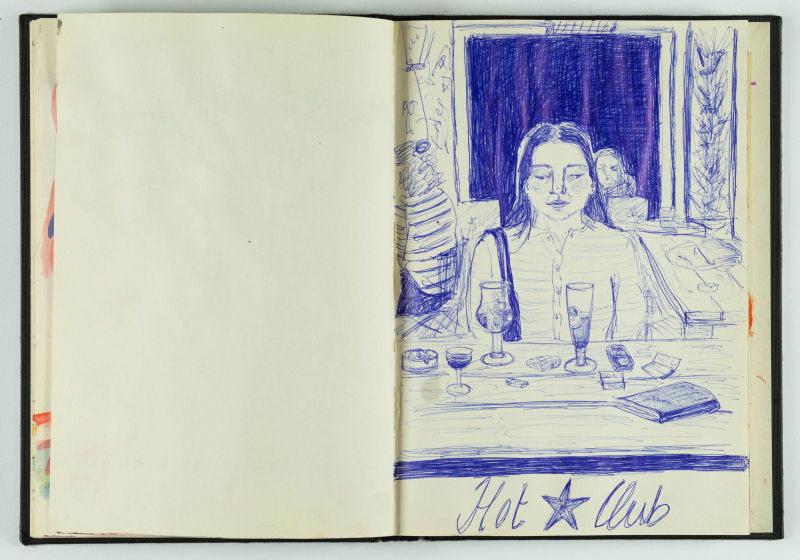 Hot ★ Club